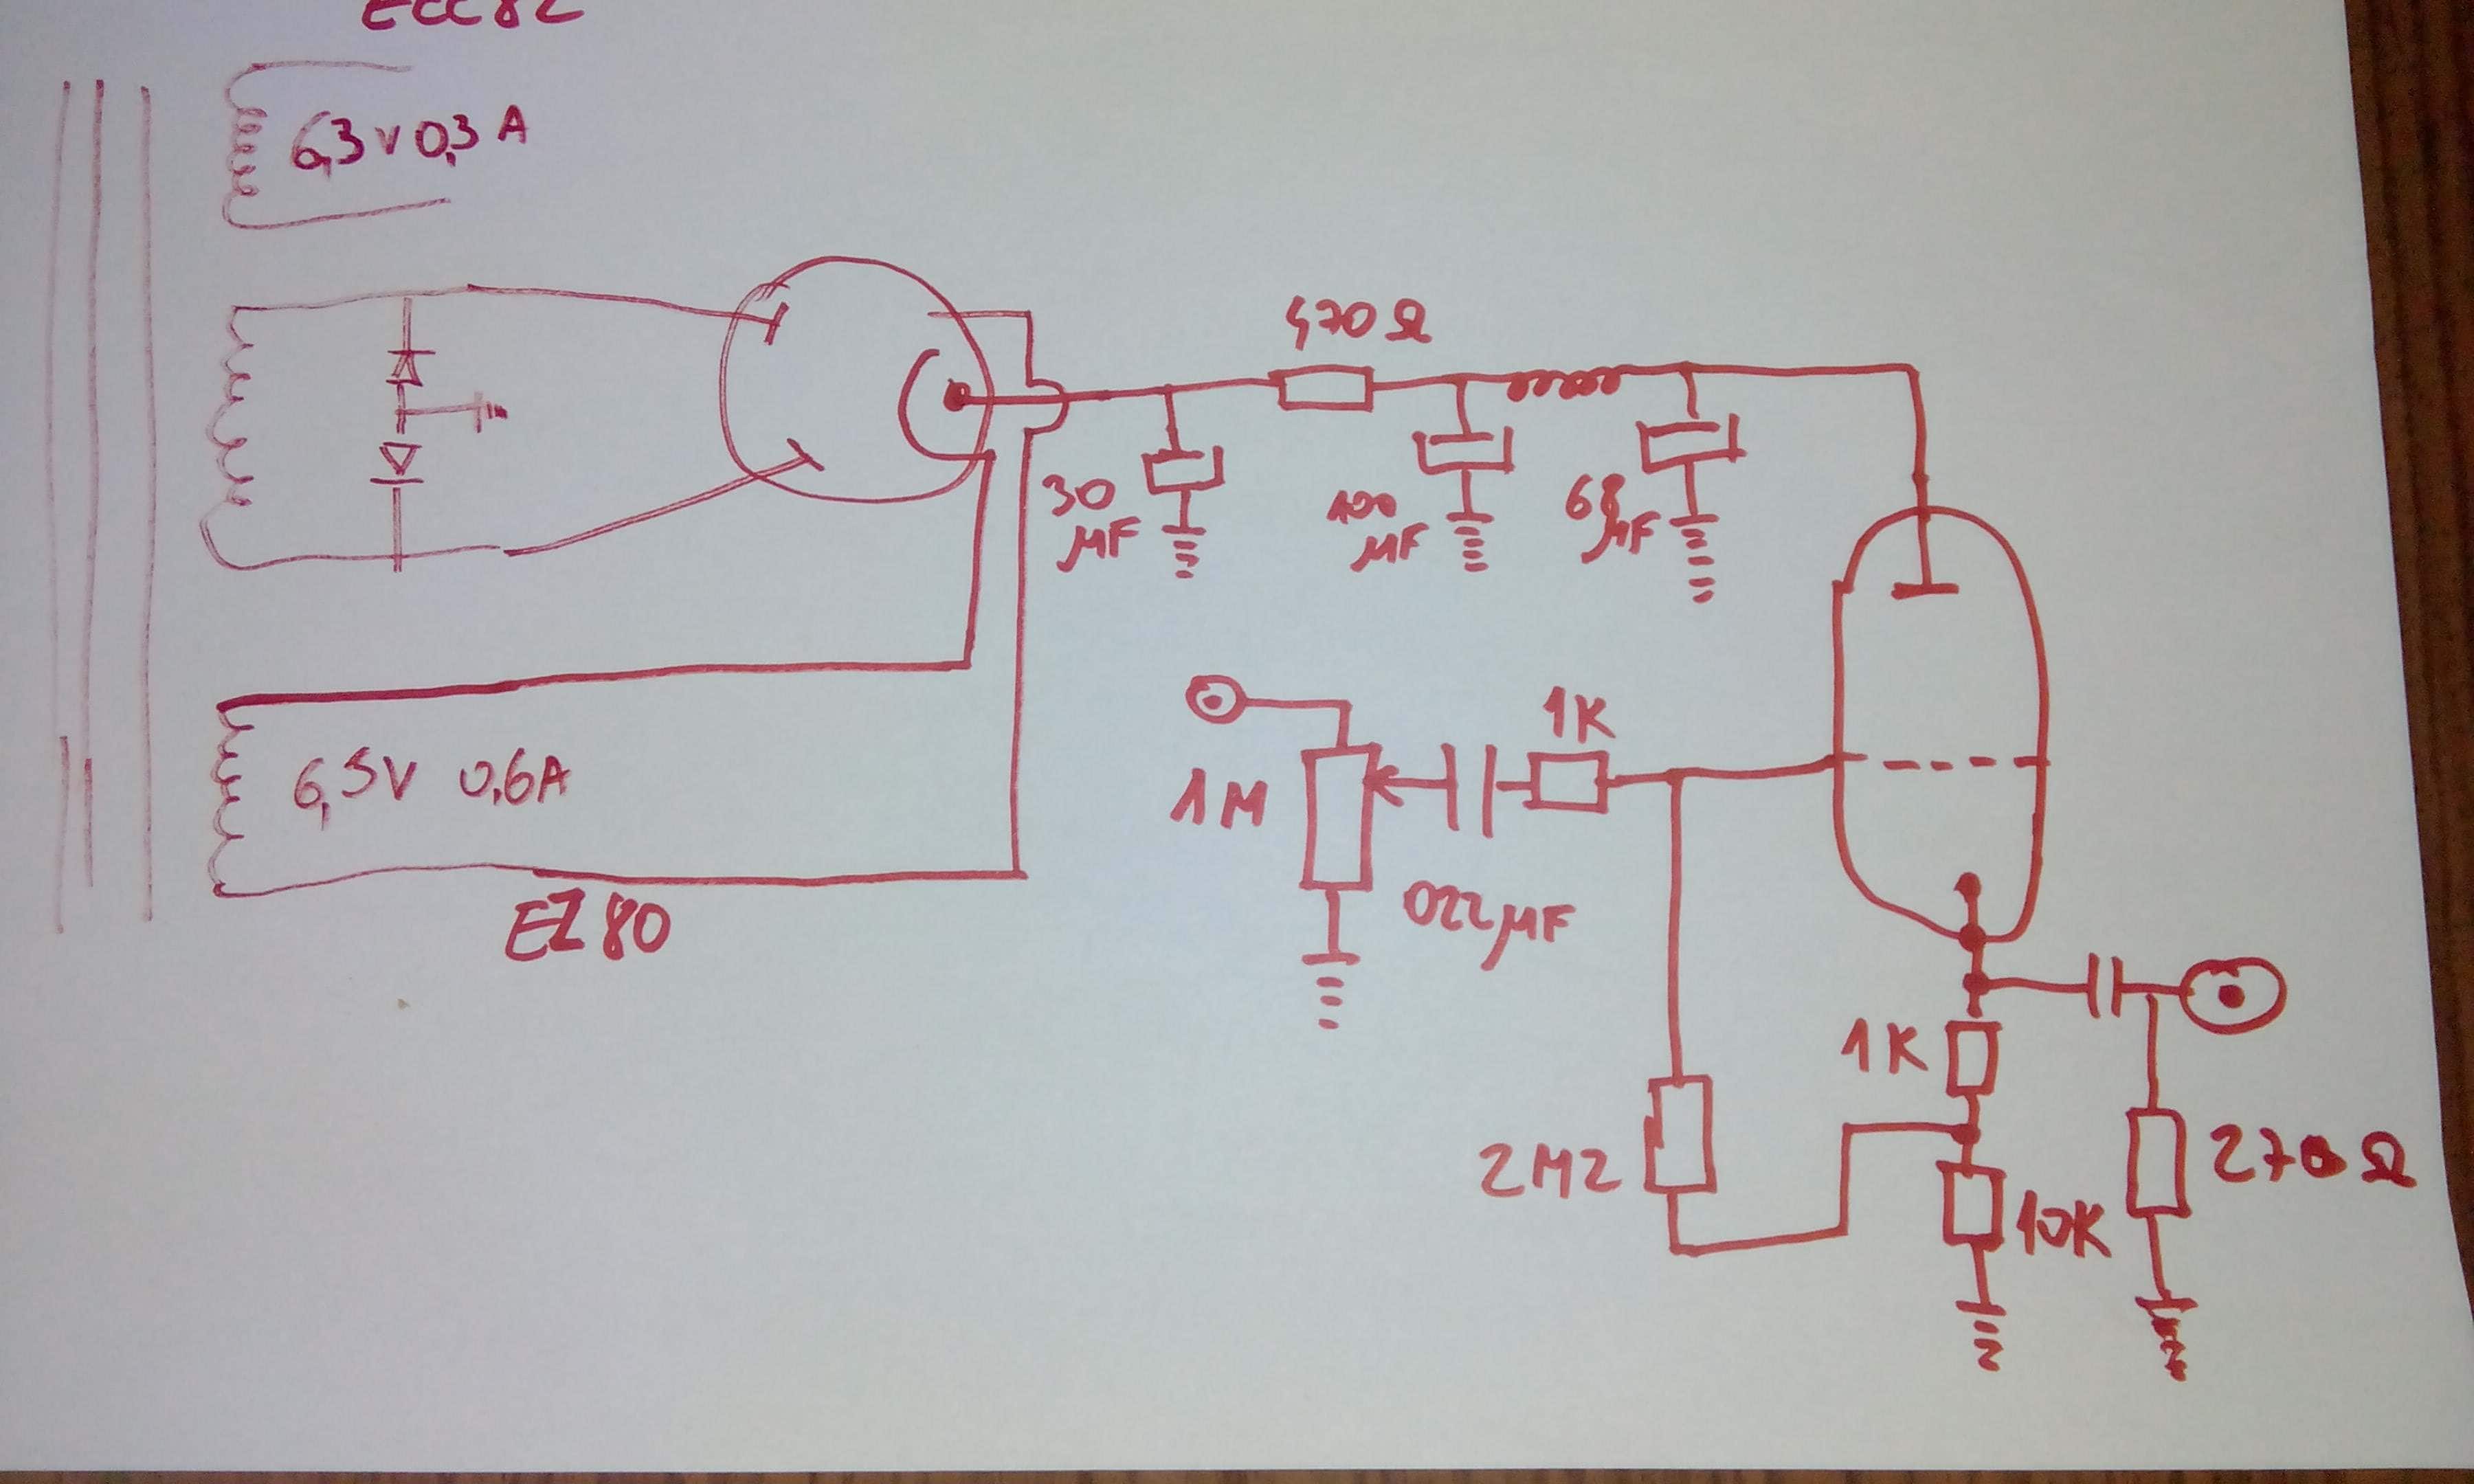 ECC82
6,3 V 0,3 A
470 Ω
30
µF
100
µF
68
µF
6,3V 0,6A
EZ80
1K
1M
022µF
1K
2M2
10K
270 Ω